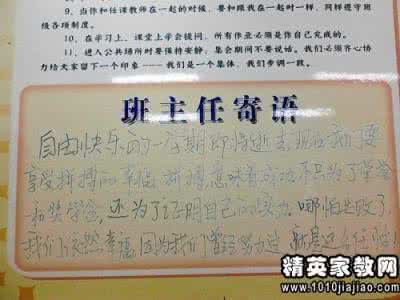 9、当你和任课教师在一起的时候,要和跟我在一起时一样,同样遵守班
级各项制度。
10、在学习上,课堂上学会提问,所有作业必须是你自己完成的。
11、进入公共场所时要保持安静;集会期间不要说话。我们必须齐心协
力给大家留下一个印象——我们是一个集体,我们步调一致。
班主任寄语
自由快乐的一星期即将逝去 现在我们要
享受拼搏的幸福 拼搏 意味着成功 不只为了荣誉
和奖学金，还为了证明自己的实力。哪怕失败了
我们依然幸福 因为我们曾经努力过
精英家教网
www.1010jiajiao.com